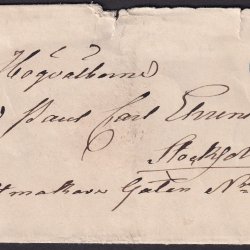 Högvälborne
Paul Carl Ehren
Stockhol
makare Gatan No